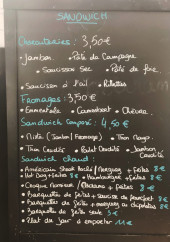 SANDWICH
Charcuteries : 3,50€
• Jambon • Pâté de Campagne
• Saucisson Sec • Pâté de foie
• Saucisson à l'ail • Rillettes
Fromages : 3,50€
• Emmental • Camembert • Chèvre
Sandwich composé : 4,50€
• Mixte (Jambon/Fromage) • Thon Mayo
• Thon Crudités • Poulet Crudités • Jambon
Crudités
Sandwich chaud :
• Américain Steak haché / Merguez + frites
• Hot Dog + frites • Hamburger + frites
• Croque Monsieur / + frites
• Barquette de frites + saucisse de
• Barquette de frites + merguez ou chipolatas 8€
• Barquette de frites seule 3€
• Plat du jour à emporter 11€